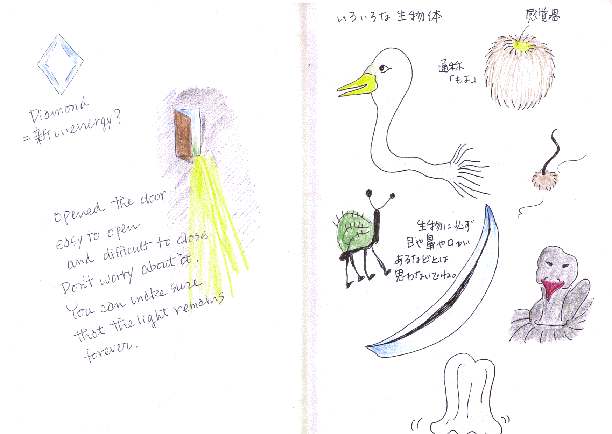 Diamond
= 新しいenergy?
opened the door
easy to open
and difficult to close
Don't worry about it.
You can make sure
that the light remains
forever.
いろいろな生物体
感覚器
通称
「もよ」
生物に必ず
目や鼻や口が
あるなどとは
思わないでね。